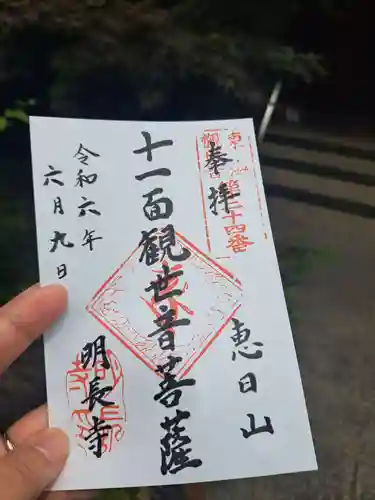 奉拝
恵日山
十一面観世音菩薩
令和六年
六月九日
明長寺